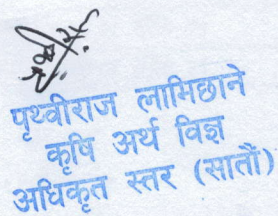 पृथ्वीराज लामिछाने
कृषि अर्थ विज्ञ
अधिकृत स्तर (सातौं)